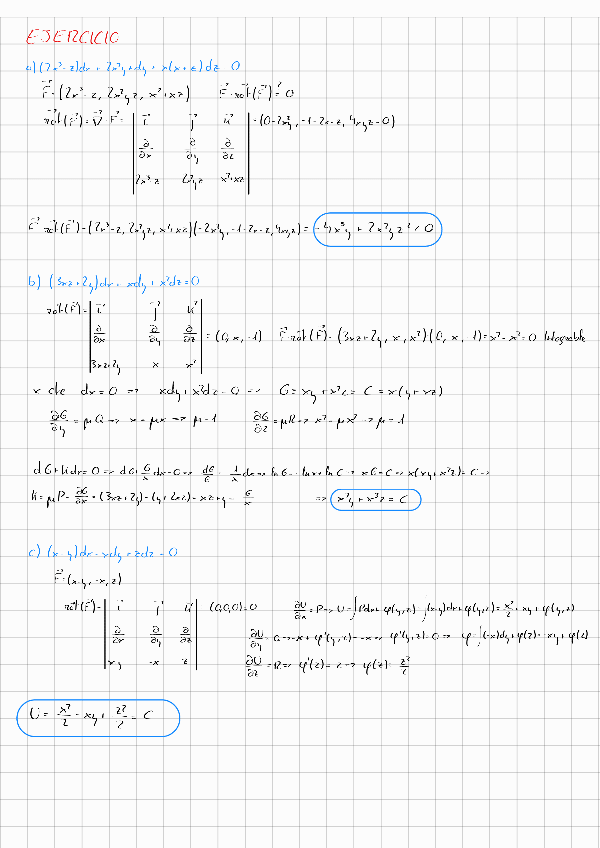 EJERCICIO
a) (2x³-z)dx + 2x²yz dy + x(x+z)dz = 0
F = (2x³-z, 2x²yz, x²+xz) F·rot(F) ≟ 0
rot(F) = ∇·F =
i j k
∂/∂x ∂/∂y ∂/∂z = (0-2x²y, -1-2x-z, 4xyz-0)
2x³-z 2x²yz x²+xz
F·rot(F) = (2x³-z, 2x²yz, x²+xz)(-2x²y, -1-2x-z, 4xyz) =
b) (3xz+2y)dx + xdy + x²dz = 0
rot(F) = i j k
∂/∂x ∂/∂y ∂/∂z = (0, x, -1) F·rot(F) = (3xz+2y, x, x²)(0, x, 1) = x² - x² = 0 Integrable
3xz+2y x x²
x cte dx = 0 => xdy + x²dz = 0 => G = xy + x²z = C = x(y+xz)
∂G/∂y = μQ => x = μx => μ = 1 ∂G/∂z = μR => x² = μx² => μ = 1
dG + Kdx = 0 => dG + G/x dx = 0 => dG/G = 1/x dx => ln G = -ln x + ln C => xG = C => x(xy+x²z) = C =>
K = μP - ∂G/∂x = (3xz+2y) - (y+2xz) = xz + y = G/x => x²y + x³z = C
c) (x-y)dx - xdy + zdz = 0
F = (x-y, -x, z)
rot(F) = i j k (0,0,0) = 0 ∂U/∂x = P => U = ∫Pdx + φ(y,z) = ∫(x-y)dx + φ(y,z) = x²/2 - xy + φ(y,z)
∂/∂x ∂/∂y ∂/∂z ∂U/∂y = Q => -x + φ'(y,z) = -x => φ'(y,z) = 0 => φ = ∫(-x)dy + φ(z) = -xy + φ(z)
x-y -x z ∂U/∂z = R => φ'(z) = z => φ(z) = z²/2
U = x²/2 - xy + z²/2 = C